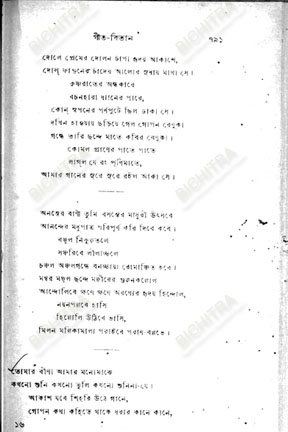 গীত-বিতান ৭৯১
দোলে প্রেমের দোলন চাঁপা হৃদয় আকাশে,
দোল্ ফাগুনের চাঁদের আলোর সুধায় মাখা সে।
কৃষ্ণরাতের অন্ধকারে
বচনহারা ধ্যানের পারে,
কোন্ স্বপনের পর্ণপুটে ছিল ঢাকা সে।
দখিন হাওয়ায় ছড়িয়ে গেল গোপন রেণুকা।
গন্ধে তারি ছন্দে মাতে কবির বেণুকা।
কোমল প্রাণের পাতে পাতে
লাগল যে রং পূর্ণিমাতে,
আমার গানের সুরে সুরে রইল আঁকা সে।
অনন্তের বাণী তুমি বসন্তের মাধুরী উৎসবে
আনন্দের মধুপাত্র পরিপূর্ণ করি দিবে কবে।
বঞ্জুল নিকুঞ্জতলে
সঞ্চরিবে লীলাচ্ছলে
চঞ্চল অঞ্চলগন্ধে বনচ্ছায়া রোমাঞ্চিত হবে।
মন্থর মঞ্জুল ছন্দে মঞ্জীরের গুঞ্জনকল্লোল
আন্দোলিবে ক্ষণে ক্ষণে অরণ্যের হৃদয় হিন্দোল,
নয়নপল্লবে হাসি
হিল্লোলি উঠিবে ভাসি,
মিলন মল্লিকামাল্য পরাইবে পরাণ-বল্লভে।
তোমার বীণা আমার মনোমাঝে
কখনো শুনি কখনো ভুলি কখনো শুনিনা যে।
আকাশ যবে শিহরি উঠে গানে,
গোপন কথা কহিতে থাকে ধরার কানে কানে,
১৬
BICHITRA